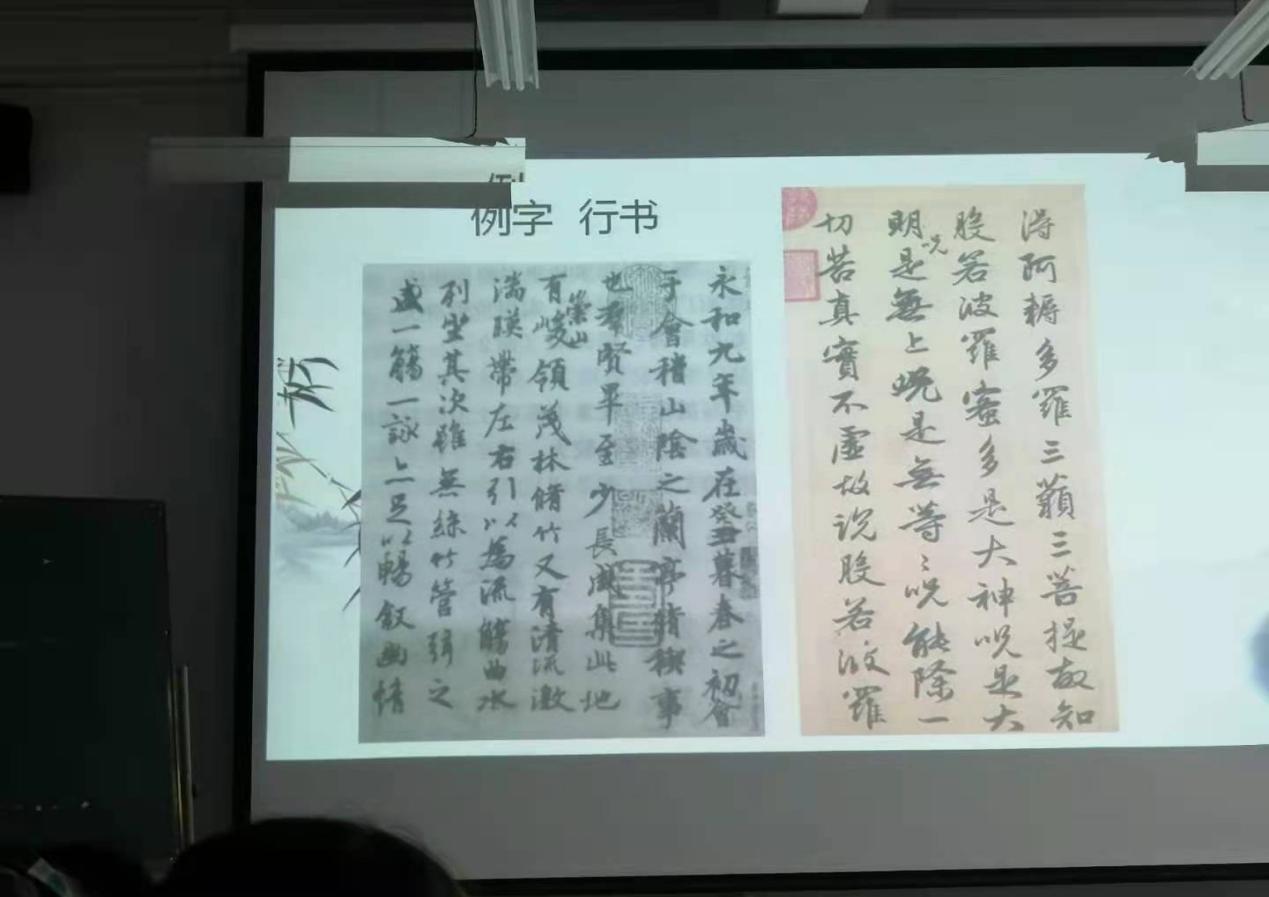 例字 行书
永和九年歲在癸丑暮春之初會
于會稽山陰之蘭亭脩稧事
也羣賢畢至少長咸集此地
有崇山峻領茂林脩竹又有清流激
湍暎帶左右引以為流觴曲水
列坐其次雖無絲竹管弦之
盛一觴一詠亦足以暢敘幽情
得阿耨多羅三藐三菩提故知
般若波羅蜜多是大神呪是大
明呪是無上呪是無等等呪能除一
切苦真實不虛故說般若波羅